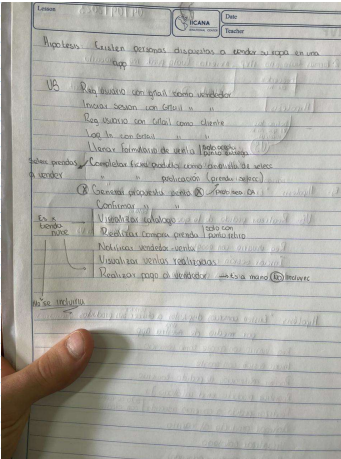 Lesson
IICANA
Date
Teacher
Hipotesis: Existen personas dispuestas a vender su ropa en una
app
US Reg usuario con gmail como vendedor
Iniciar sesion con Gmail " "
Reg usuario con Gmail como cliente
Log In con Gmail " "
Llenar formulario de venta
solo acepta
punto entrega
Selecc prendas
a vender
Completar ficha producto como analista de selecc
" " publicación (prenda selecc)
Generar propuesta venta
Confirmar " "
Visualizar catalogo
Realizar compra prenda
solo con
punto retiro
Notificar vendedor venta
Visualizar ventas realizadas
Realizar pago al vendedor → Es a mano No incluirc
Es x
tienda
nube
No se incluiria